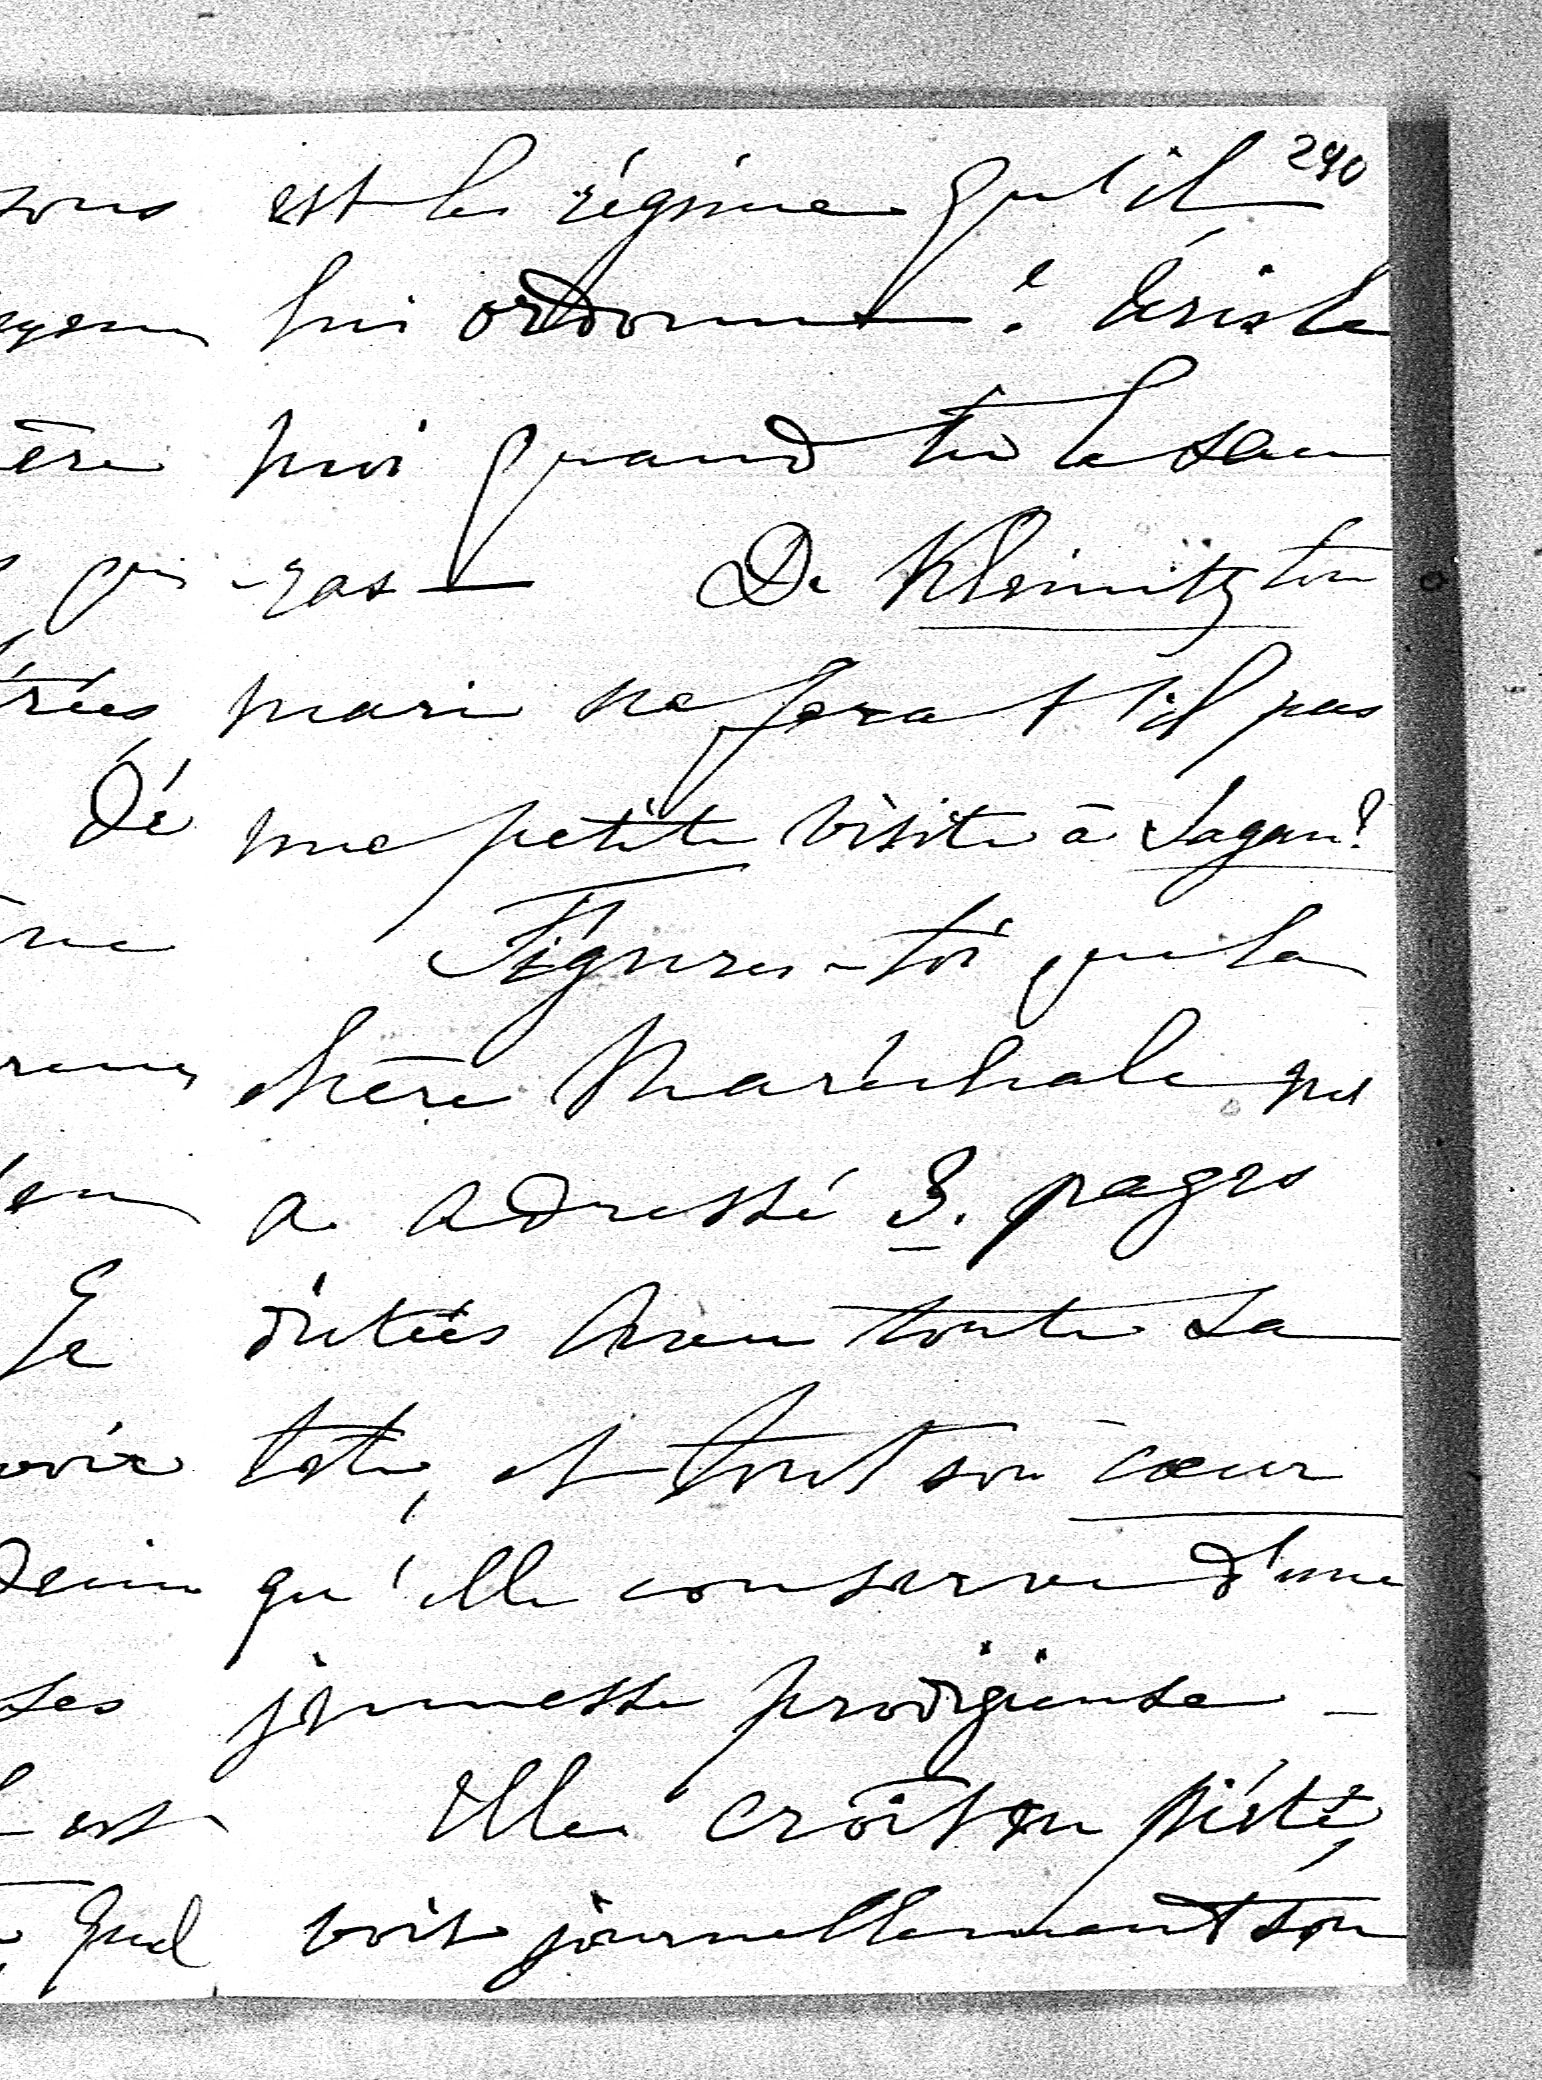 290
est le régime qu'il
lui ordonne? Écris le
moi quand tu le sau
-ras — De Kleinitz ton
mari ne fera t'il pas
une petite visite à Sagan?
Figures-toi que la
chère Maréchale m'
a adressé 3. pages
dictées avec toute sa
tête, et tout son cœur
qu'elle conserve d'une
jeunesse prodigieuse —
Elle croît en piété,
voit journellement son
sous
ère
qui
trées
Dé
Je
voir
ses
est
Quel